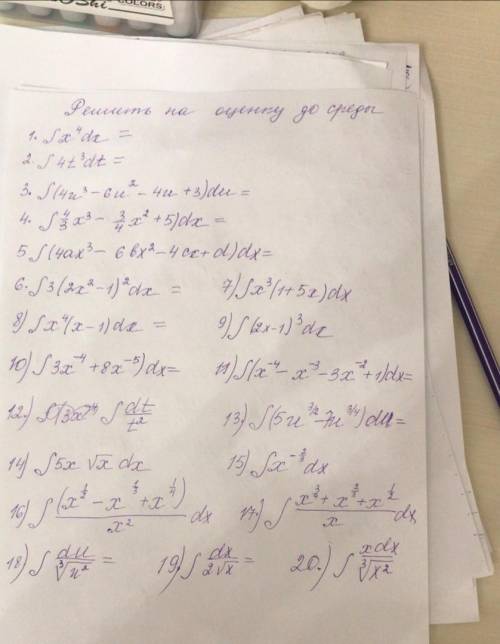 COLORS
Решить на оценку до среды
1. ∫x⁴dx =
2. ∫4t³dt =
3. ∫(4u³ - 6u² - 4u + 3)du =
4. ∫(4/3 x³ - 3/4 x² + 5)dx =
5. ∫(4ax³ - 6bx² - 4cx + d)dx =
6. ∫3(2x² - 1)²dx = 7) ∫x³(1+5x)dx
8) ∫x⁴(x-1)dx = 9) ∫(2x-1)³dx
10) ∫3x⁻⁴ + 8x⁻⁵)dx = 11) ∫(x⁻⁴ - x⁻³ - 3x⁻² + 1)dx =
12.) ∫dt/t² 13.) ∫(5u^(3/2) - 7u^(3/4))du =
14) ∫5x √x dx 15) ∫x^(-2/3)dx
16) ∫(x^(1/2) - x^(1/3) + x^(1/4))/x² dx 17.) ∫(x + x + x^(1/2))/x dx
18) ∫du/∛u² = 19.) ∫dx/2√x = 20.) ∫xdx/∛x²